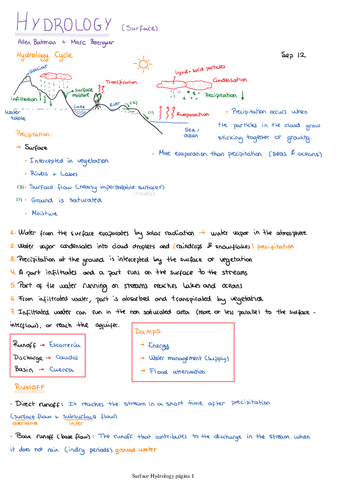 HYDROLOGY (Surface)
Hydrology Cycle
Sep 12
Glaciar
Infiltration
Water table
Surface moisture
Transpiration
Lake
River
(1)
Liquid + solid particles
Condensation
Precipitation
Evaporation
Sea / ocean
· Precipitation occurs when
the particles in the cloud grow
sticking together or growing
· More evaporation than precipitation (seas & oceans)
Precipitation
→ Surface
· Intercepted in vegetation
· Rivers + Lakes
· Surface flow (nearly impermeable surfaces)
(1) · Ground is saturated
· Moisture
1. Water from the surface evaporates by solar radiation → water vapor in the atmosphere
2. Water vapor condensates into cloud droplets and (raindrops & snowflakes) precipitation
3. Precipitation at the ground is intercepted by the surface or vegetation
4. A part infiltrates and a part runs on the surface to the streams
5. Part of the water running on streams reaches lakes and oceans
6. From infiltrated water, part is absorbed and transpirated by vegetation
7. Infiltrated water can run in the non saturated area (more or less parallel to the surface -
interflow), or reach the aquifer.
Runoff → Escorrería
Discharge → Caudal
Basin → Cuenca
Damps
→ Energy
→ Water management (supply)
→ Flood attenuation
RUNOFF
· Direct runoff: It reaches the stream in a short time after precipitation
(surface flow + subsurface flow)
overland inter
· Base runoff (base flow): The runoff that contributes to the discharge in the stream when
it does not rain (in dry periods) ground water
Surface Hydrology página 1